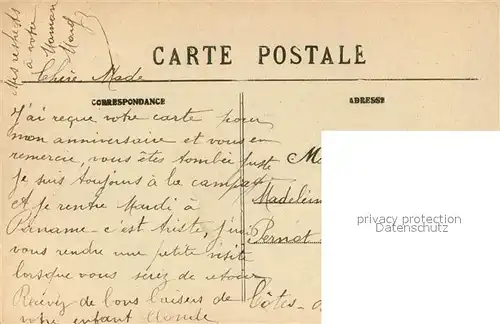 Mes respects
à votre
Maman
CARTE POSTALE
Chère Made
CORRESPONDANCE
ADRESSE
J'ai reçue votre carte pour
mon anniversaire et vous en
remercie, vous êtes tombée juste
je suis toujours à la campa
et je rentre Mardi à
c'est triste, j'irai
vous rendre une petite visite
lorsque vous serez de retour
Recevez de bons baisers de
votre enfant Claude
Madelein
Pernot
Côtes-
privacy protection
Datenschutz